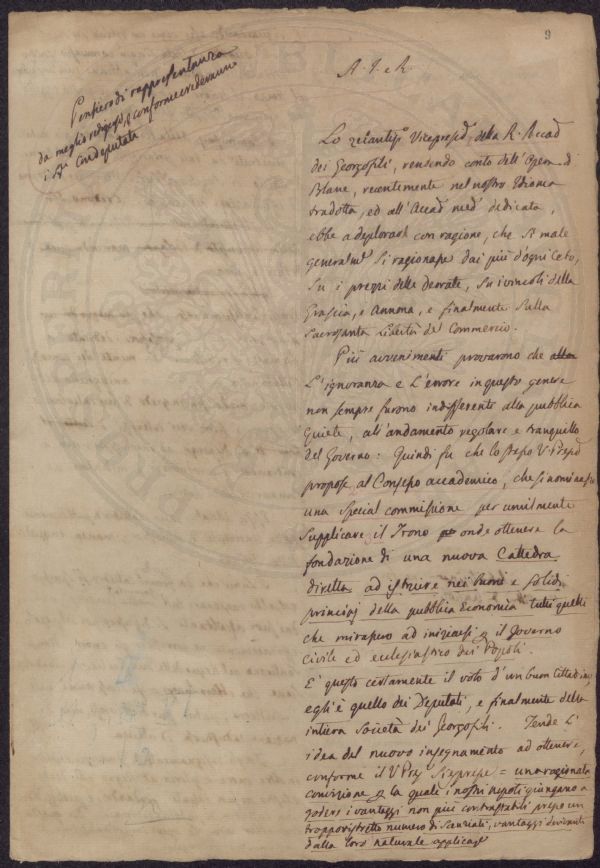 9
A. I. e R.
Pensiero di rappresentanza
da meglio redigersi, conforme crederanno
i SS.ri Condeputati
Lo zelantiss.o Vicepresid.e della R. Accad.
dei Georgofili, rendendo conto dell'Opera di
Blanc, recentemente nel nostro Idioma
tradotta, ed all'Accad. med.a dedicata,
ebbe a deplorare con ragione, che sì male
generalm.e si ragionasse dai più d'ogni Ceto,
su i prezzi delle Derrate, su i vincoli della
Grascia, e Annona, e finalmente sulla
Sacrosanta Libertà del Commercio.
Più avvenimenti provarono che
L'ignoranza e l'errore in questo genere
non sempre furono indifferenti alla pubblica
Quiete, all'andamento regolare e tranquillo
del Governo: Quindi fu che lo stesso V. Presid.
propose al Consesso accademico, che si nominasse
una Special commissione per umilmente
Supplicare il Trono onde ottenere la
fondazione di una nuova Cattedra
diretta ad istruire nei buoni e solidi
principj della pubblica Economia tutti quelli
che mirassero ad iniziarsi il Governo
civile ed ecclesiastico dei Popoli.
E' questo certamente il voto d'un buon Cittadino,
egli è quello dei Deputati, e finalmente della
intiera Società dei Georgofili. Tende l'
idea del nuovo insegnamento ad ottenere,
conforme il V. Pres. si espresse = una ragionata
convinzione la quale i nostri nepoti giungano a
godere i vantaggi non più contrastabili presso un
troppo ristretto numero di Scenziati, vantaggi derivanti
dalla loro naturale applicaz.e